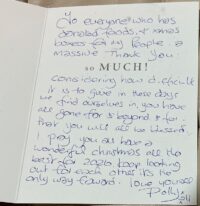 To everyone who has
donated foods, & xmas
boxes for my people, a
massive Thank you.
so MUCH!
Considering how difficult
it is to give in these days
we find ourselves in, you have
all gone far & beyond & for
that you will all be blessed.
I pray you all have a
wonderful christmas all the
best for 2026 keep looking
out for each other its the
only way foward. love you all
Polly